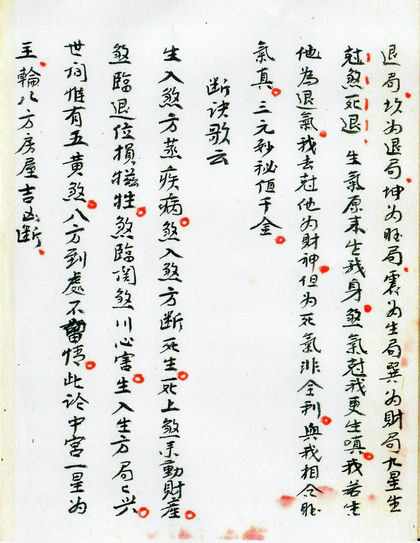 退局坎为退局坤为旺局震为生局巽为財局九星生
尅煞死退 生氣原来生我身煞氣尅我更生嗔我若生
他為退氣我去尅他为財神但为死氣非全利與我相合旺
氣真 三元秒秘值千金
断诀歌云
生入煞方蒸疾病煞入煞方断死生死上煞来動財產
煞臨退位損犠牲煞臨関煞川心害生入生方局已兴
世间惟有五黄煞八方到處不留情此论中宫一星为
主輪八方房屋吉凶断